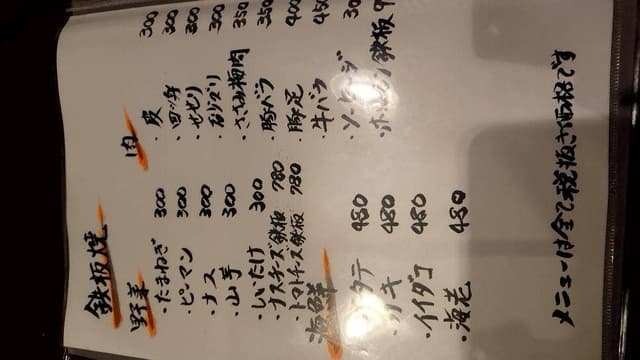 鉄板焼
野菜
・たまねぎ 300
・ピーマン 300
・ナス 300
・山芋 300
・しいたけ 300
・ナスチーズ鉄板 780
・トマトチーズ鉄板 780
海鮮
480
480
・イイダコ 480
・海老 480
肉
・皮 300
・四ツ身 300
・せせり 300
・ずり 300
・ささみ梅肉 350
・豚バラ 350
・豚足 400
・牛バラ 450
・ソーセージ
・ホルモン鉄板
メニューは全て税抜き価格です